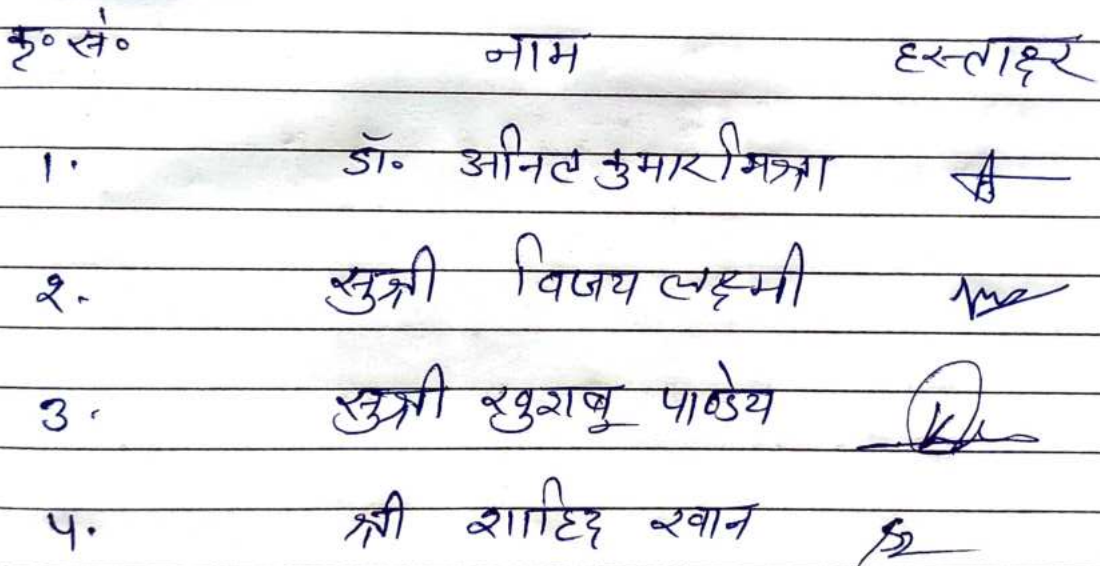 कृ० सं० नाम हस्ताक्षर
१. डॉ० अनिल कुमार मिश्रा
२. सुश्री विजय लक्ष्मी
३. सुश्री खुशबू पाण्डेय
४. श्री शाहिद खान